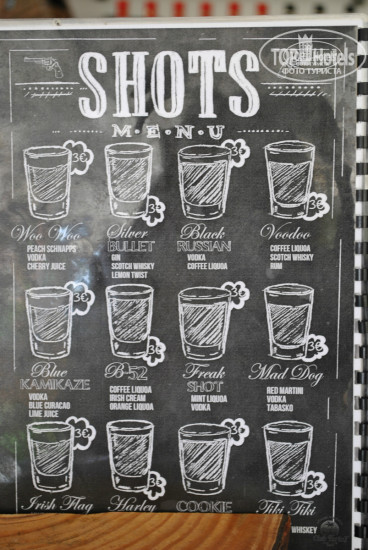 TOP Hotels
ФОТО ТУРИСТА
SHOTS
M·E·N·U
3€ 3€ 3€ 3€
Woo Woo
PEACH SCHNAPPS
VODKA
CHERRY JUICE
Silver
BULLET
GIN
SCOTCH WHISKY
LEMON TWIST
Black
RUSSIAN
VODKA
COFFEE LIQUOA
Voodoo
COFFEE LIQUOA
SCOTCH WHISKY
RUM
3€ 3€ 3€ 3€
Blue
KAMIKAZE
VODKA
BLUE CURACAO
LIME JUICE
B-52
COFFEE LIQUOA
IRISH CREAM
ORANGE LIQUOA
Freak
SHOT
MINT LIQUOA
VODKA
Mad Dog
RED MARTINI
VODKA
TABASKO
3€ 3€ 3€ 3€
Irish Flag
Harley
COOKIE
Tiki Tiki
WHISKEY